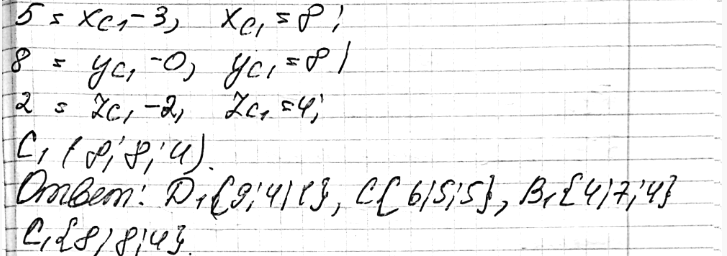 5 = x_{C_1} - 3, x_{C_1} = 8;
8 = y_{C_1} - 0, y_{C_1} = 8;
2 = z_{C_1} - 2, z_{C_1} = 4;
C_1 (8; 8; 4).
Ответ: D_1{9; 4; 1}, C{6; 5; 5}, B_1{4; 7; 4}
C_1{8; 8; 4}.